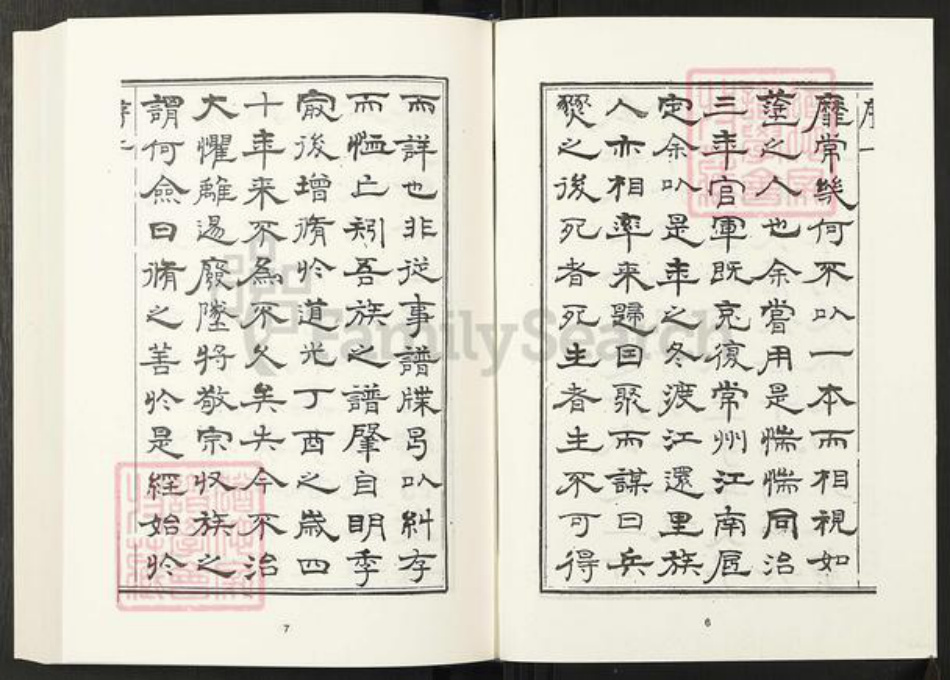 序一
靡常幾何不㕥一本而相視如
蓬之人也余嘗用是惴惴同治
三年官軍既克復常州江南底
定余㕥是年之冬渡江還里族
人亦相率來歸因聚而謀曰兵
燹之後死者死生者生不可得
6
而詳也非從事譜牒曷㕥糾存
而恤亡矧吾族之譜肇自明季
最後增脩於道光丁酉之歲四
十年來不為不久矣失今不治
大懼離逷廢墜將敬宗收族之
謂何僉曰脩之善於是經始於
7
FamilySearch